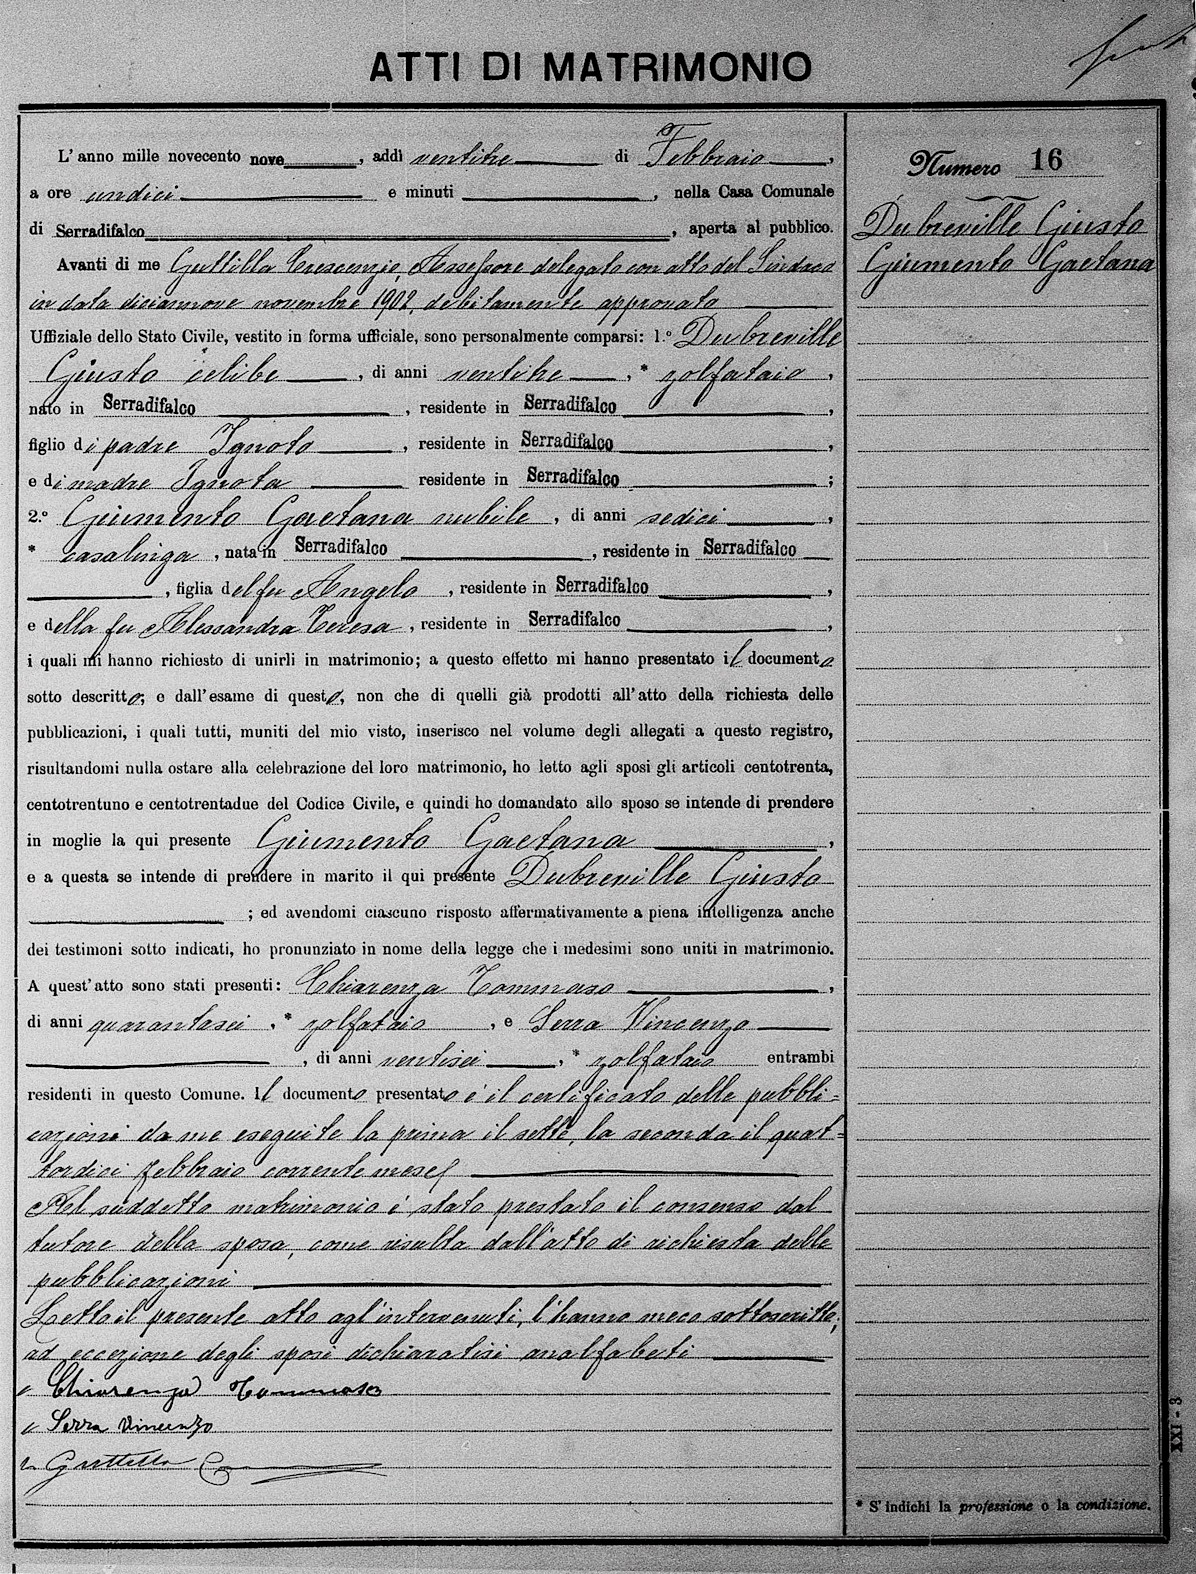 ATTI DI MATRIMONIO
L'anno mille novecento nove, addì ventitre di Febbraio,
a ore undici e minuti , nella Casa Comunale
di Serradifalco, aperta al pubblico.
Avanti di me Guttilla Crescenzio, Assessore delegato con atto del Sindaco
in data diciannove novembre 1902, debitamente approvato
Uffiziale dello Stato Civile, vestito in forma ufficiale, sono personalmente comparsi: 1.° Dubreville
Giusto celibe, di anni ventitre, * zolfataio,
nato in Serradifalco, residente in Serradifalco,
figlio di padre Ignoto, residente in Serradifalco,
e di madre Ignota residente in Serradifalco;
2.° Giumento Gaetana nubile, di anni sedici,
* casalinga, nata in Serradifalco, residente in Serradifalco
, figlia del fu Angelo, residente in Serradifalco,
e della fu Alessandra Teresa, residente in Serradifalco,
i quali mi hanno richiesto di unirli in matrimonio; a questo effetto mi hanno presentato il documento
sotto descritto; e dall'esame di questo, non che di quelli già prodotti all'atto della richiesta delle
pubblicazioni, i quali tutti, muniti del mio visto, inserisco nel volume degli allegati a questo registro,
risultandomi nulla ostare alla celebrazione del loro matrimonio, ho letto agli sposi gli articoli centotrenta,
centotrentuno e centotrentadue del Codice Civile, e quindi ho domandato allo sposo se intende di prendere
in moglie la qui presente Giumento Gaetana,
e a questa se intende di prendere in marito il qui presente Dubreville Giusto
; ed avendomi ciascuno risposto affermativamente a piena intelligenza anche
dei testimoni sotto indicati, ho pronunziato in nome della legge che i medesimi sono uniti in matrimonio.
A quest'atto sono stati presenti: Chiarenza Tommaso,
di anni quarantasei, * zolfataio, e Serra Vincenzo
, di anni ventisei, * zolfataio entrambi
residenti in questo Comune. Il documento presentato è il certificato delle pubbli=
cazioni da me eseguite la prima il sette, la seconda il quat=
tordici febbraio corrente mese
Nel suddetto matrimonio è stato prestato il consenso dal
tutore della sposa, come risulta dall'atto di richiesta delle
pubblicazioni
Letto il presente atto agl'intervenuti, l'hanno meco sottoscritto,
ad eccezione degli sposi dichiaratisi analfabeti
Chiarenza Tommaso
Serra Vincenzo
Guttilla C
Numero 16
Dubreville Giusto
Giumento Gaetana
XXI - 3
* S'indichi la professione o la condizione.